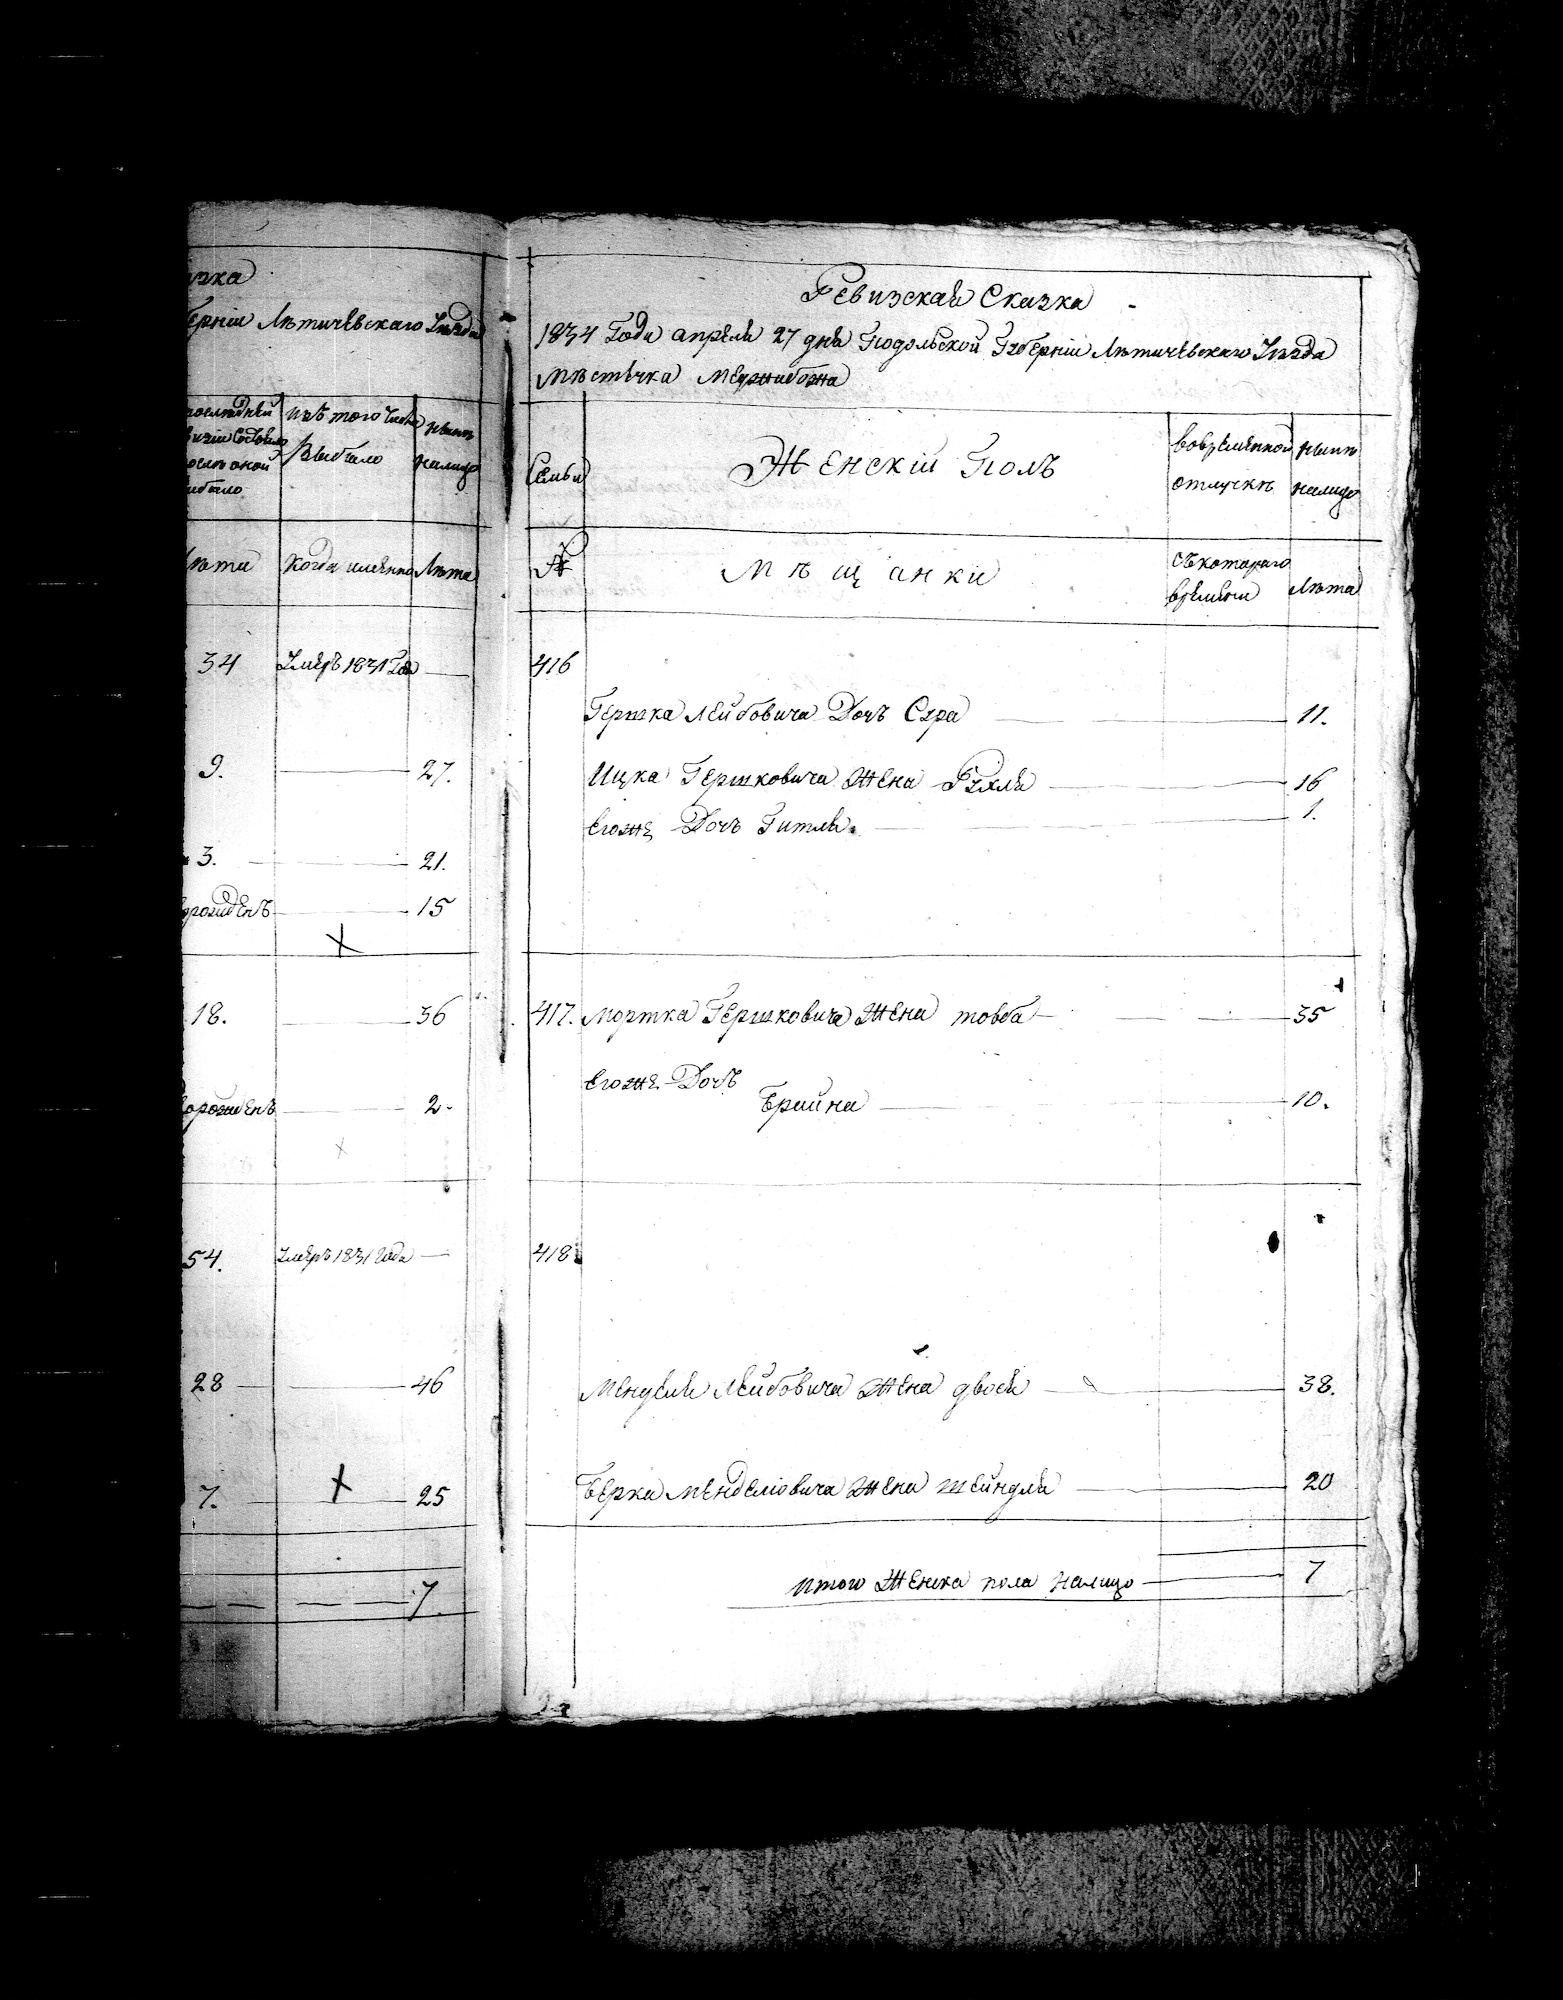 зка
ерніи Лѣтичевскаго Уѣзда
последней
визіи состояло
послѣ оной
было
изъ того числа
Выбыло
нынѣ
налицо
Лѣта
когда именно
Лѣта
34 Умеръ 1831 Года —
9. — 27.
3. — 21.
Новорожденъ — 15
18. — 36
Новорожденъ — 2.
54. Умеръ 1831 Года —
28 — 46
7. — 25
— — 7.
Ревизская Сказка
1834 Года апреля 27 дня Подольской Губерніи Лѣтичевскаго Уѣзда
мѣстечка Меджибожа
Семьи
Женскій Полъ
вовременной
отлучкѣ
нынѣ
налицо
№
Мѣщанки
съ котораго
времени
Лѣта
416
Гершка Лейбовича Дочъ Сура — 11.
Ицка Гершковича Жена Рухля — 16
Егоже Дочъ Гитля — 1.
417. Мортка Гершковича Жена товба — 35
Егоже Дочъ
Брайна — 10.
418.
Менделя Лейбовича Жена двося — 38.
Берка Менделіовича Жена Шейндля — 20
Итого Женска пола налицо — 7